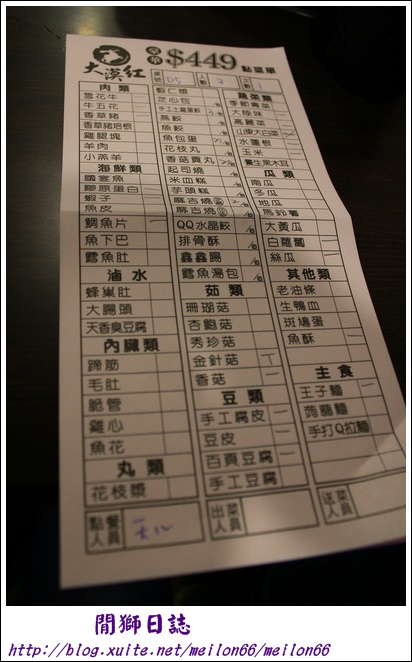 大漠紅 豪華 $449 點菜單
桌號 D5 人數 3
肉類
雪花牛
牛五花
香草豬
香草豬培根
雞腿塊
羊肉
小羔羊
海鮮類
國宴魚
膠原蛋白
蝦子
魚皮
鯛魚片
魚下巴
鱈魚肚
滷水
蜂巢肚
大腸頭
天香臭豆腐
內臟類
蹄筋
毛肚
脆管
雞心
魚花
丸類
花枝漿
蝦仁漿
芝心包
手工土雞蛋餃
燕餃
魚餃
魚包蛋
花枝丸
香菇貢丸
起司燒
米血糕
芋頭糕
麻吉燒
麻吉燒
QQ水晶餃
排骨酥
鑫鑫腸
鱈魚湯包
菇類
珊瑚菇
杏鮑菇
秀珍菇
金針菇
香菇
豆類
手工腐皮
豆皮
百頁豆腐
手工豆腐
蔬菜類
季節青菜
大陸妹
高麗菜
山東大白菜
水蓮根
玉米
養生黑木耳
瓜類
南瓜
冬瓜
地瓜
馬鈴薯
大黃瓜
白蘿蔔
絲瓜
其他類
老油條
生鴨血
斑鳩蛋
魚酥
主食
王子麵
蒟蒻麵
手打Q拉麵
點餐人員
出菜人員
送菜人員
閒獅日誌
http://blog.xuite.net/meilon66/meilon66